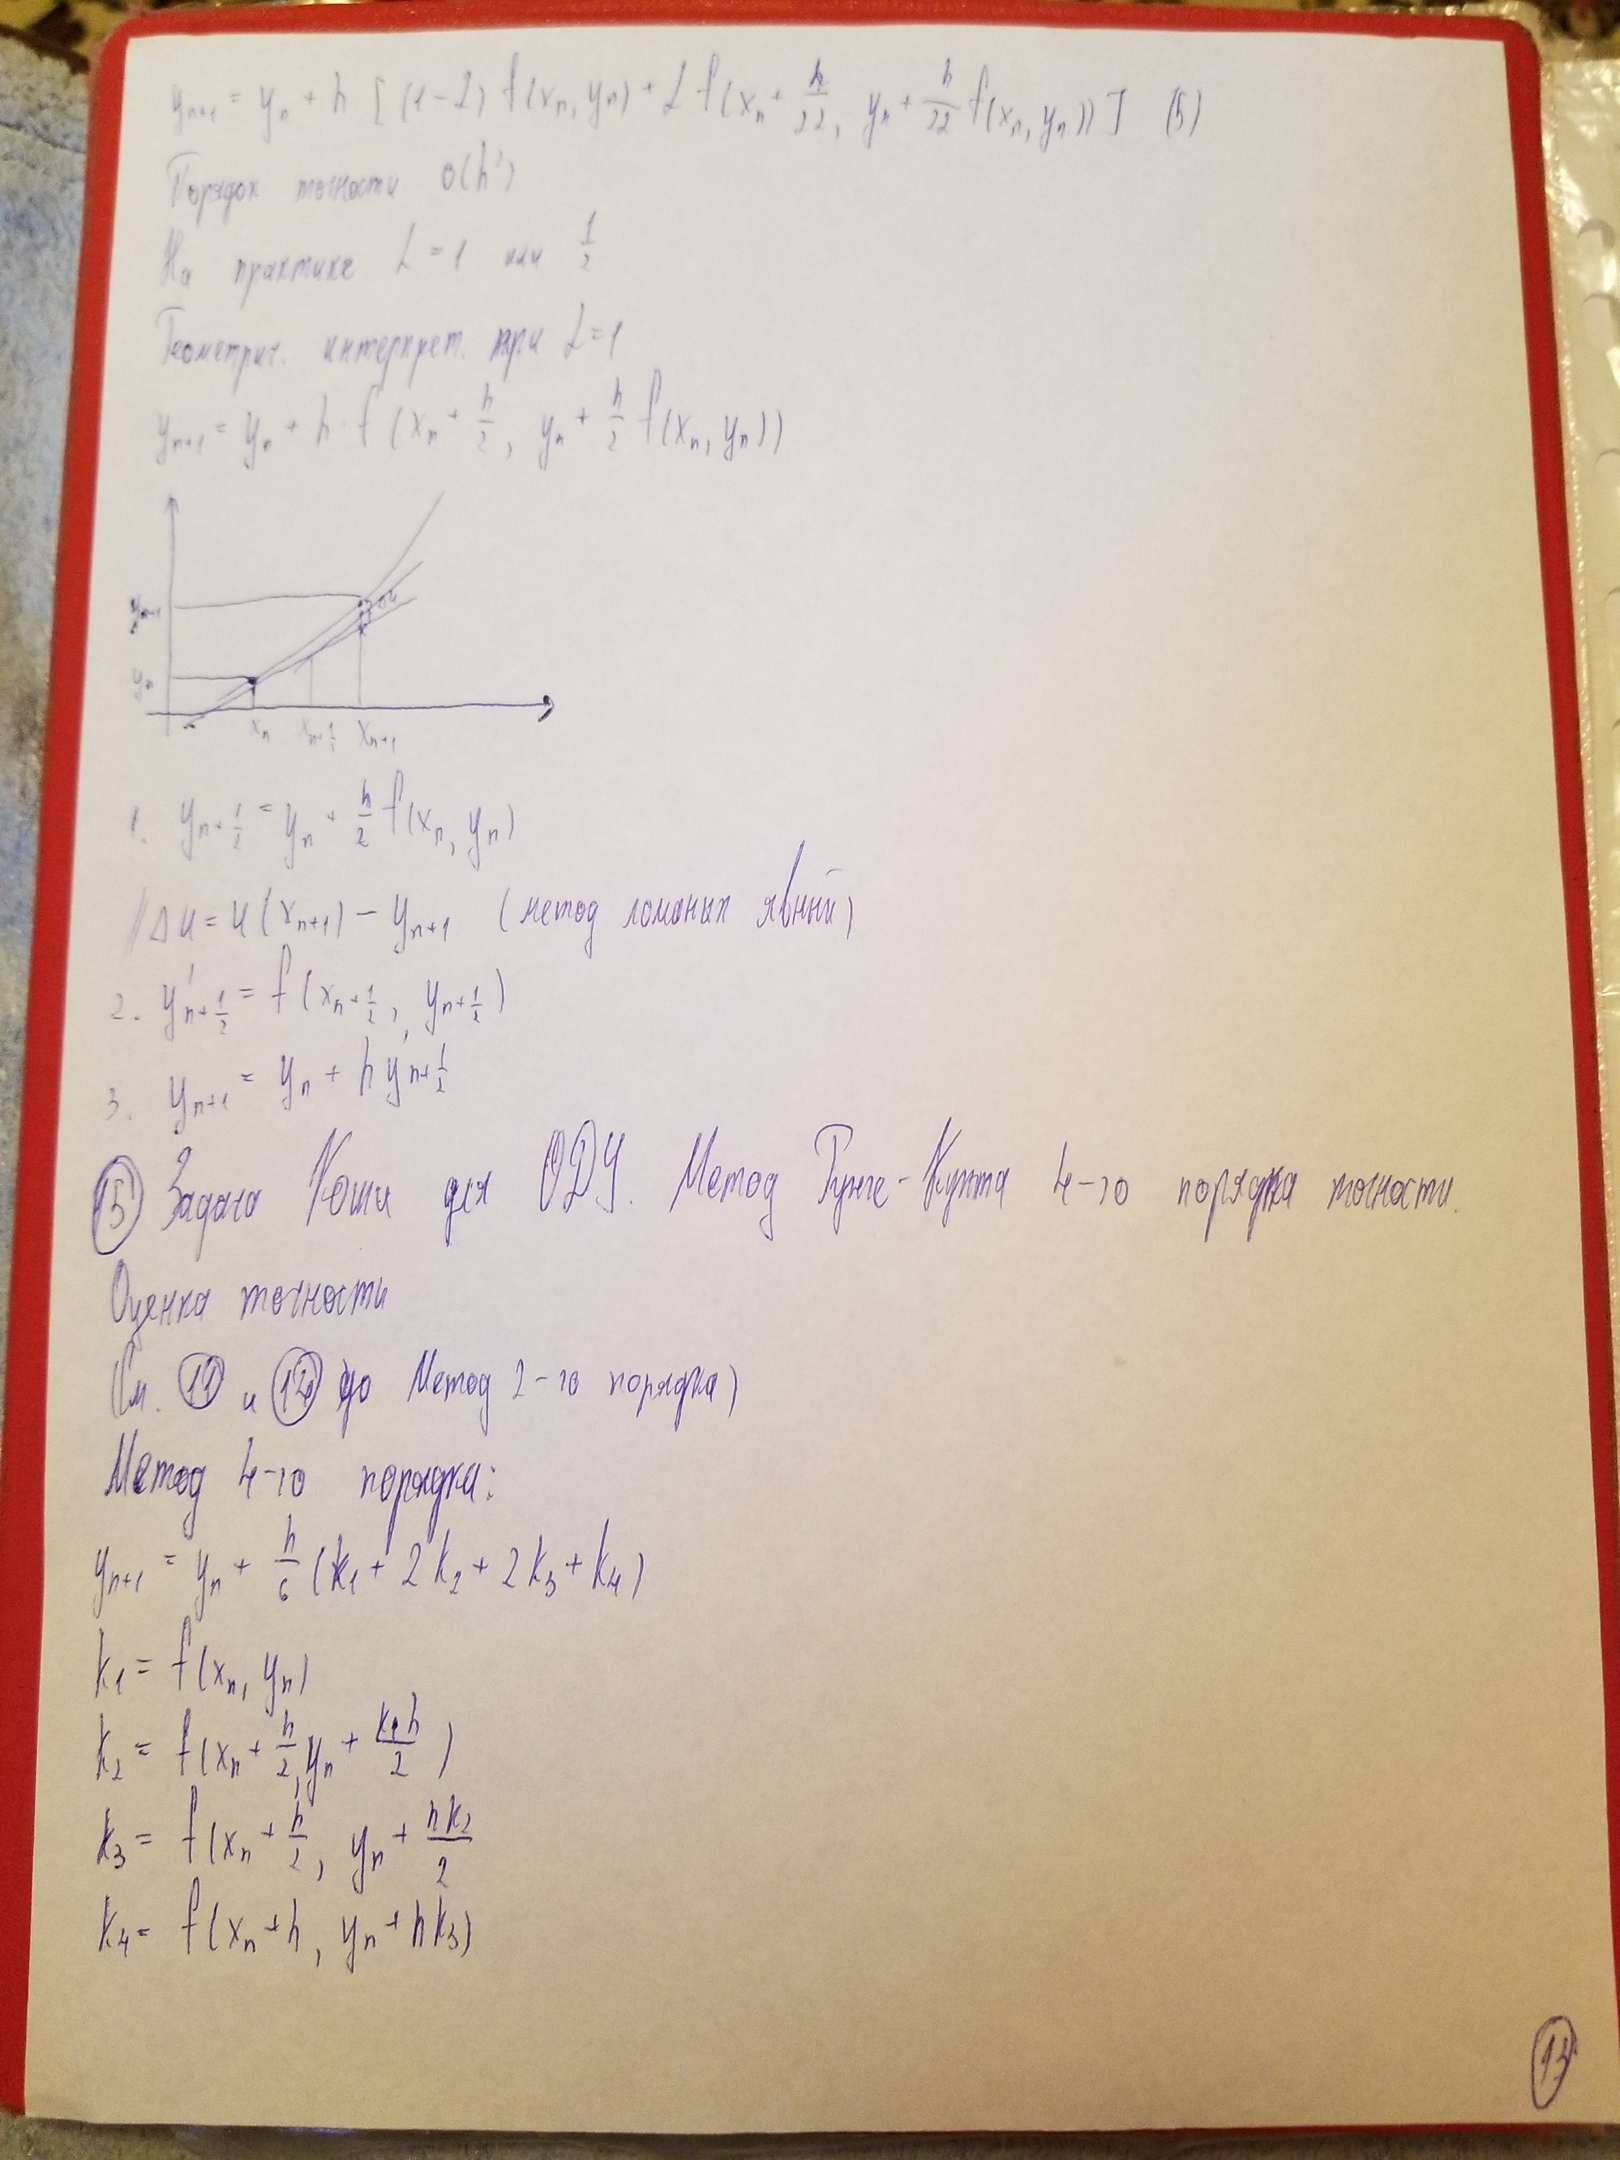 yₙ₊₁ = yₙ + h [(1-α) f(xₙ, yₙ) + α f(xₙ + h/2α, yₙ + h/2α f(xₙ, yₙ))] (5)
Порядок точности O(h²)
На практике α = 1 или 1/2
Геометрич. интерпрет. при α=1
yₙ₊₁ = yₙ + h · f (xₙ + h/2, yₙ + h/2 f(xₙ, yₙ))
yₙ₊₁
Δu
yₙ
xₙ xₙ₊½ xₙ₊₁
1. yₙ₊½ = yₙ + h/2 f(xₙ, yₙ)
// Δu = u(xₙ₊₁) - yₙ₊₁ (метод ломаных явный)
2. y'ₙ₊½ = f(xₙ₊½, yₙ₊½)
3. yₙ₊₁ = yₙ + h y'ₙ₊½
(15) Задача Коши для ОДУ. Метод Рунге-Кутта 4-го порядка точности.
Оценка точности
(См. (11) и (12) до Метод 2-го порядка)
Метод 4-го порядка:
yₙ₊₁ = yₙ + h/6 (k₁ + 2k₂ + 2k₃ + k₄)
k₁ = f(xₙ, yₙ)
k₂ = f(xₙ + h/2, yₙ + k₁h/2)
k₃ = f(xₙ + h/2, yₙ + hk₂/2
k₄ = f(xₙ + h, yₙ + hk₃)
(13)